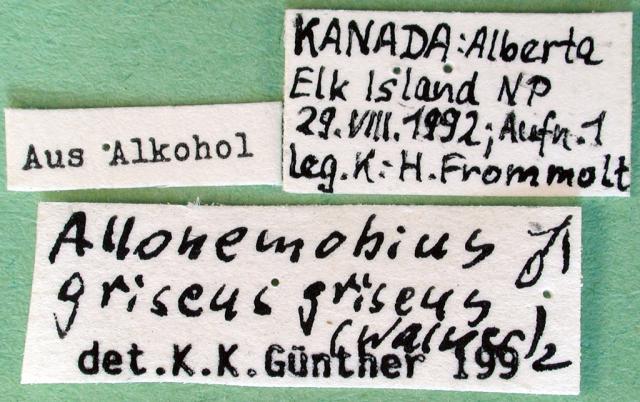 Aus Alkohol
KANADA: Alberta
Elk Island NP
29.VIII.1992; Aufn. 1
leg. K.-H. Frommolt
Allonemobius ♂
griseus griseus
(Walker)
det. K. K. Günther 1992